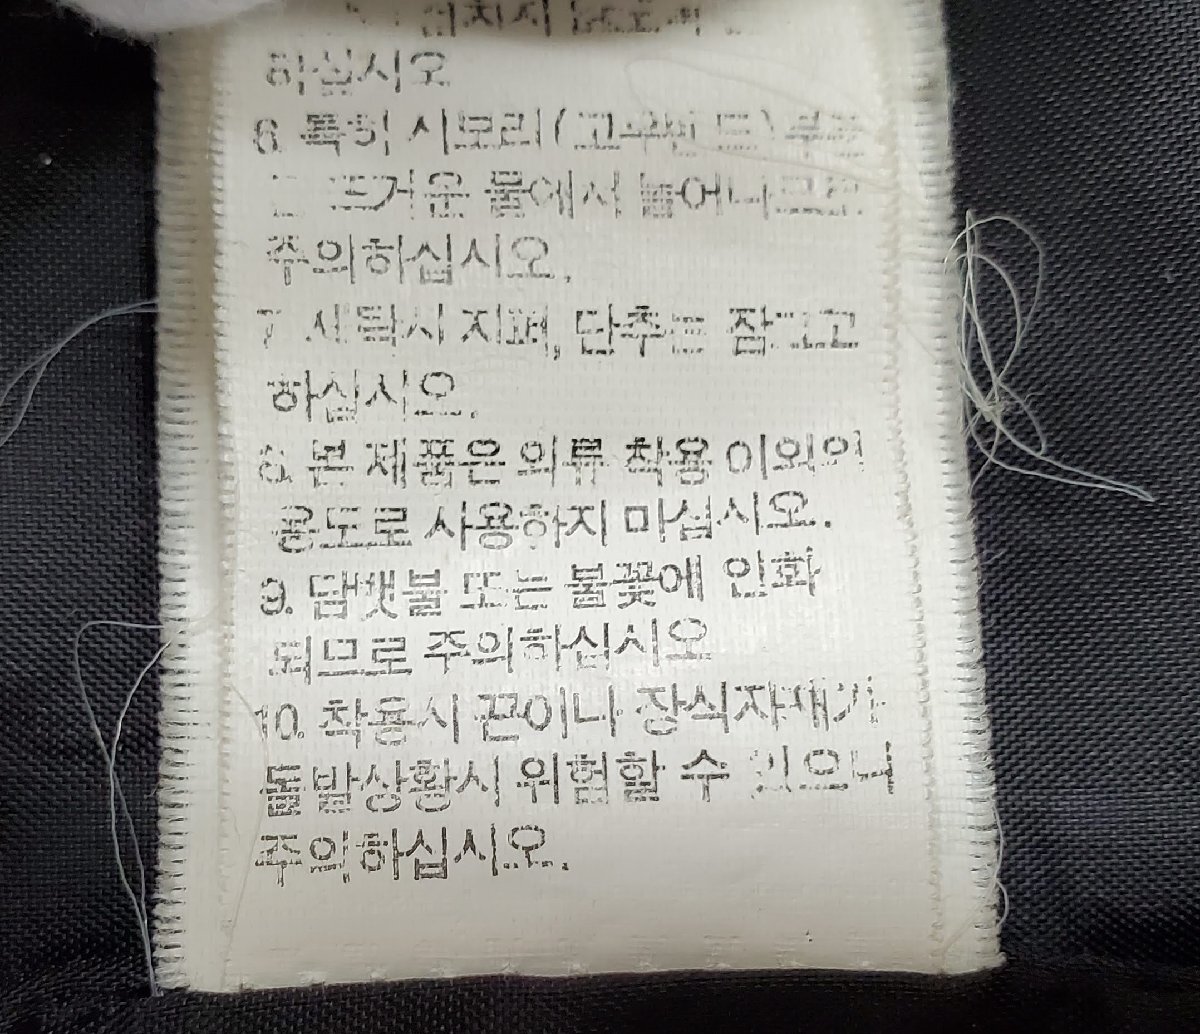 하십시오
6. 특히 시보리(고무밴드)부분
은 뜨거운 물에서 늘어나므로
주의하십시오.
7. 세탁시 지퍼, 단추는 잠그고
하십시오.
8. 본 제품은 의류 착용 이외의
용도로 사용하지 마십시오.
9. 담뱃불 또는 불꽃에 인화
되므로 주의하십시오
10. 착용시 끈이나 장식자재가
돌발상황시 위험할 수 있으니
주의하십시오.